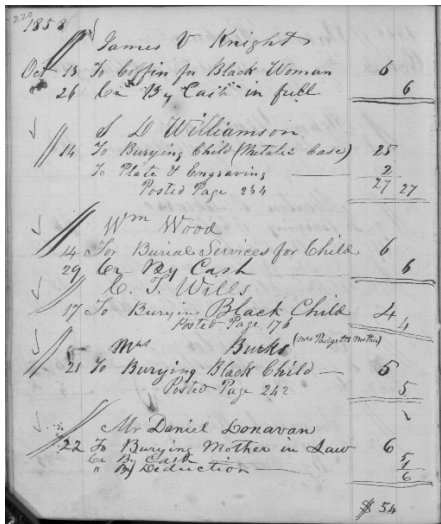 220
1858
James V Knight
Oct 15 To Coffin for Black Woman 6
" 26 Cr By Cash in full 6
S D Williamson
14 To Burying Child (Metalic Case) 25
To Plate & Engraving 2
Posted Page 234 27 27
Wm Wood
14 For Burial Services for Child 6
29 Cr By Cash 6
C. T. Wills
17 To Burying Black Child 4
Posted Page 176 4
Mrs Burks (Mrs Padgetts Mother)
21 To Burying Black Child — 5
Posted Page 242 5
Mr Daniel Donavan
22 To Burying Mother in Law 6
Cr By Cash 5
" By Deduction 1
6
$ 54